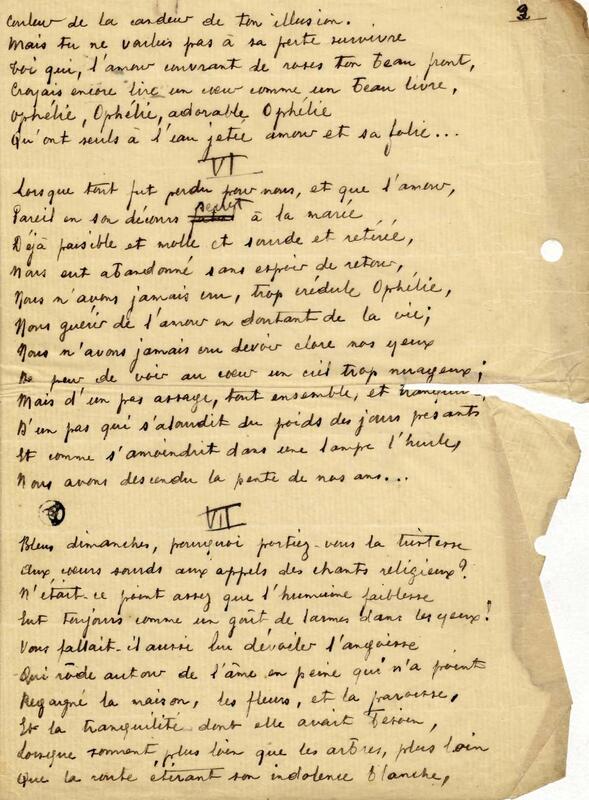 3
Couleur de la candeur de ton illusion.
Mais tu ne voulus pas à sa perte survivre
Toi qui, l'amour couvrant de roses ton beau front,
Croyais encore lire un cœur comme un beau livre,
Ophélie, Ophélie, adorable Ophélie
Qu'ont seuls à l'eau jetée amour et sa folie...
VI
Lorsque tout fut perdu pour nous, et que l'amour,
Pareil en son décours à la marée
Déjà paisible et molle et sourde et retirée,
Nous eut abandonné sans espoir de retour,
Nous n'avons jamais cru, trop crédule Ophélie,
Nous guérir de l'amour en doutant de la vie;
Nous n'avons jamais cru devoir clore nos yeux
De peur de voir au cœur un ciel trop nuageux;
Mais d'un pas assagé, tout ensemble, et
D'un pas qui s'alourdit du poids des jours pesants
Et comme s'amoindrit dans une lampe l'huile,
Nous avons descendu la pente de nos ans...
VII
Bleus dimanches, pourquoi portiez-vous la tristesse
Aux cœurs sourds aux appels des chants religieux?
N'était-ce point assez que l'humaine faiblesse
Eut toujours comme un goût de larmes dans les yeux!
Vous fallait-il aussi lui dévoiler l'angoisse
Qui rôde autour de l'âme en peine qui n'a point
Regagné la maison, les fleurs, et la paroisse,
Et la tranquilité dont elle avait besoin,
Lorsque souvent plus loin que les arbres, plus loin
Que la route étirant son indolence blanche,